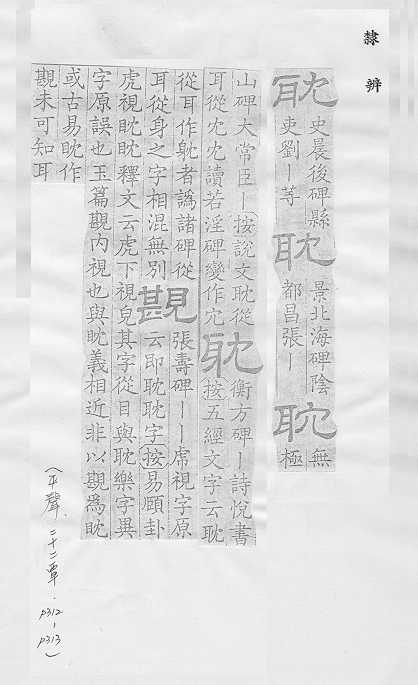 隸辨
耽 史晨後碑縣
吏劉｜等
耽 景北海碑陰
都昌張｜
耽 無
極
山碑大常臣｜按說文耽從
耳從冘冘讀若淫碑變作冗
耽 衡方碑｜詩悅書
按五經文字云耽
從耳作躭者譌諸碑從
耳從身之字相混無別
張壽碑｜｜虎視字原
云即眈眈字按易頤卦
虎視眈眈釋文云虎下視皃其字從目與耽樂字異
字原誤也玉篇內視也與眈義相近非以為眈
或古易眈作
未可知耳
(平聲、二十二覃．p312-p313)